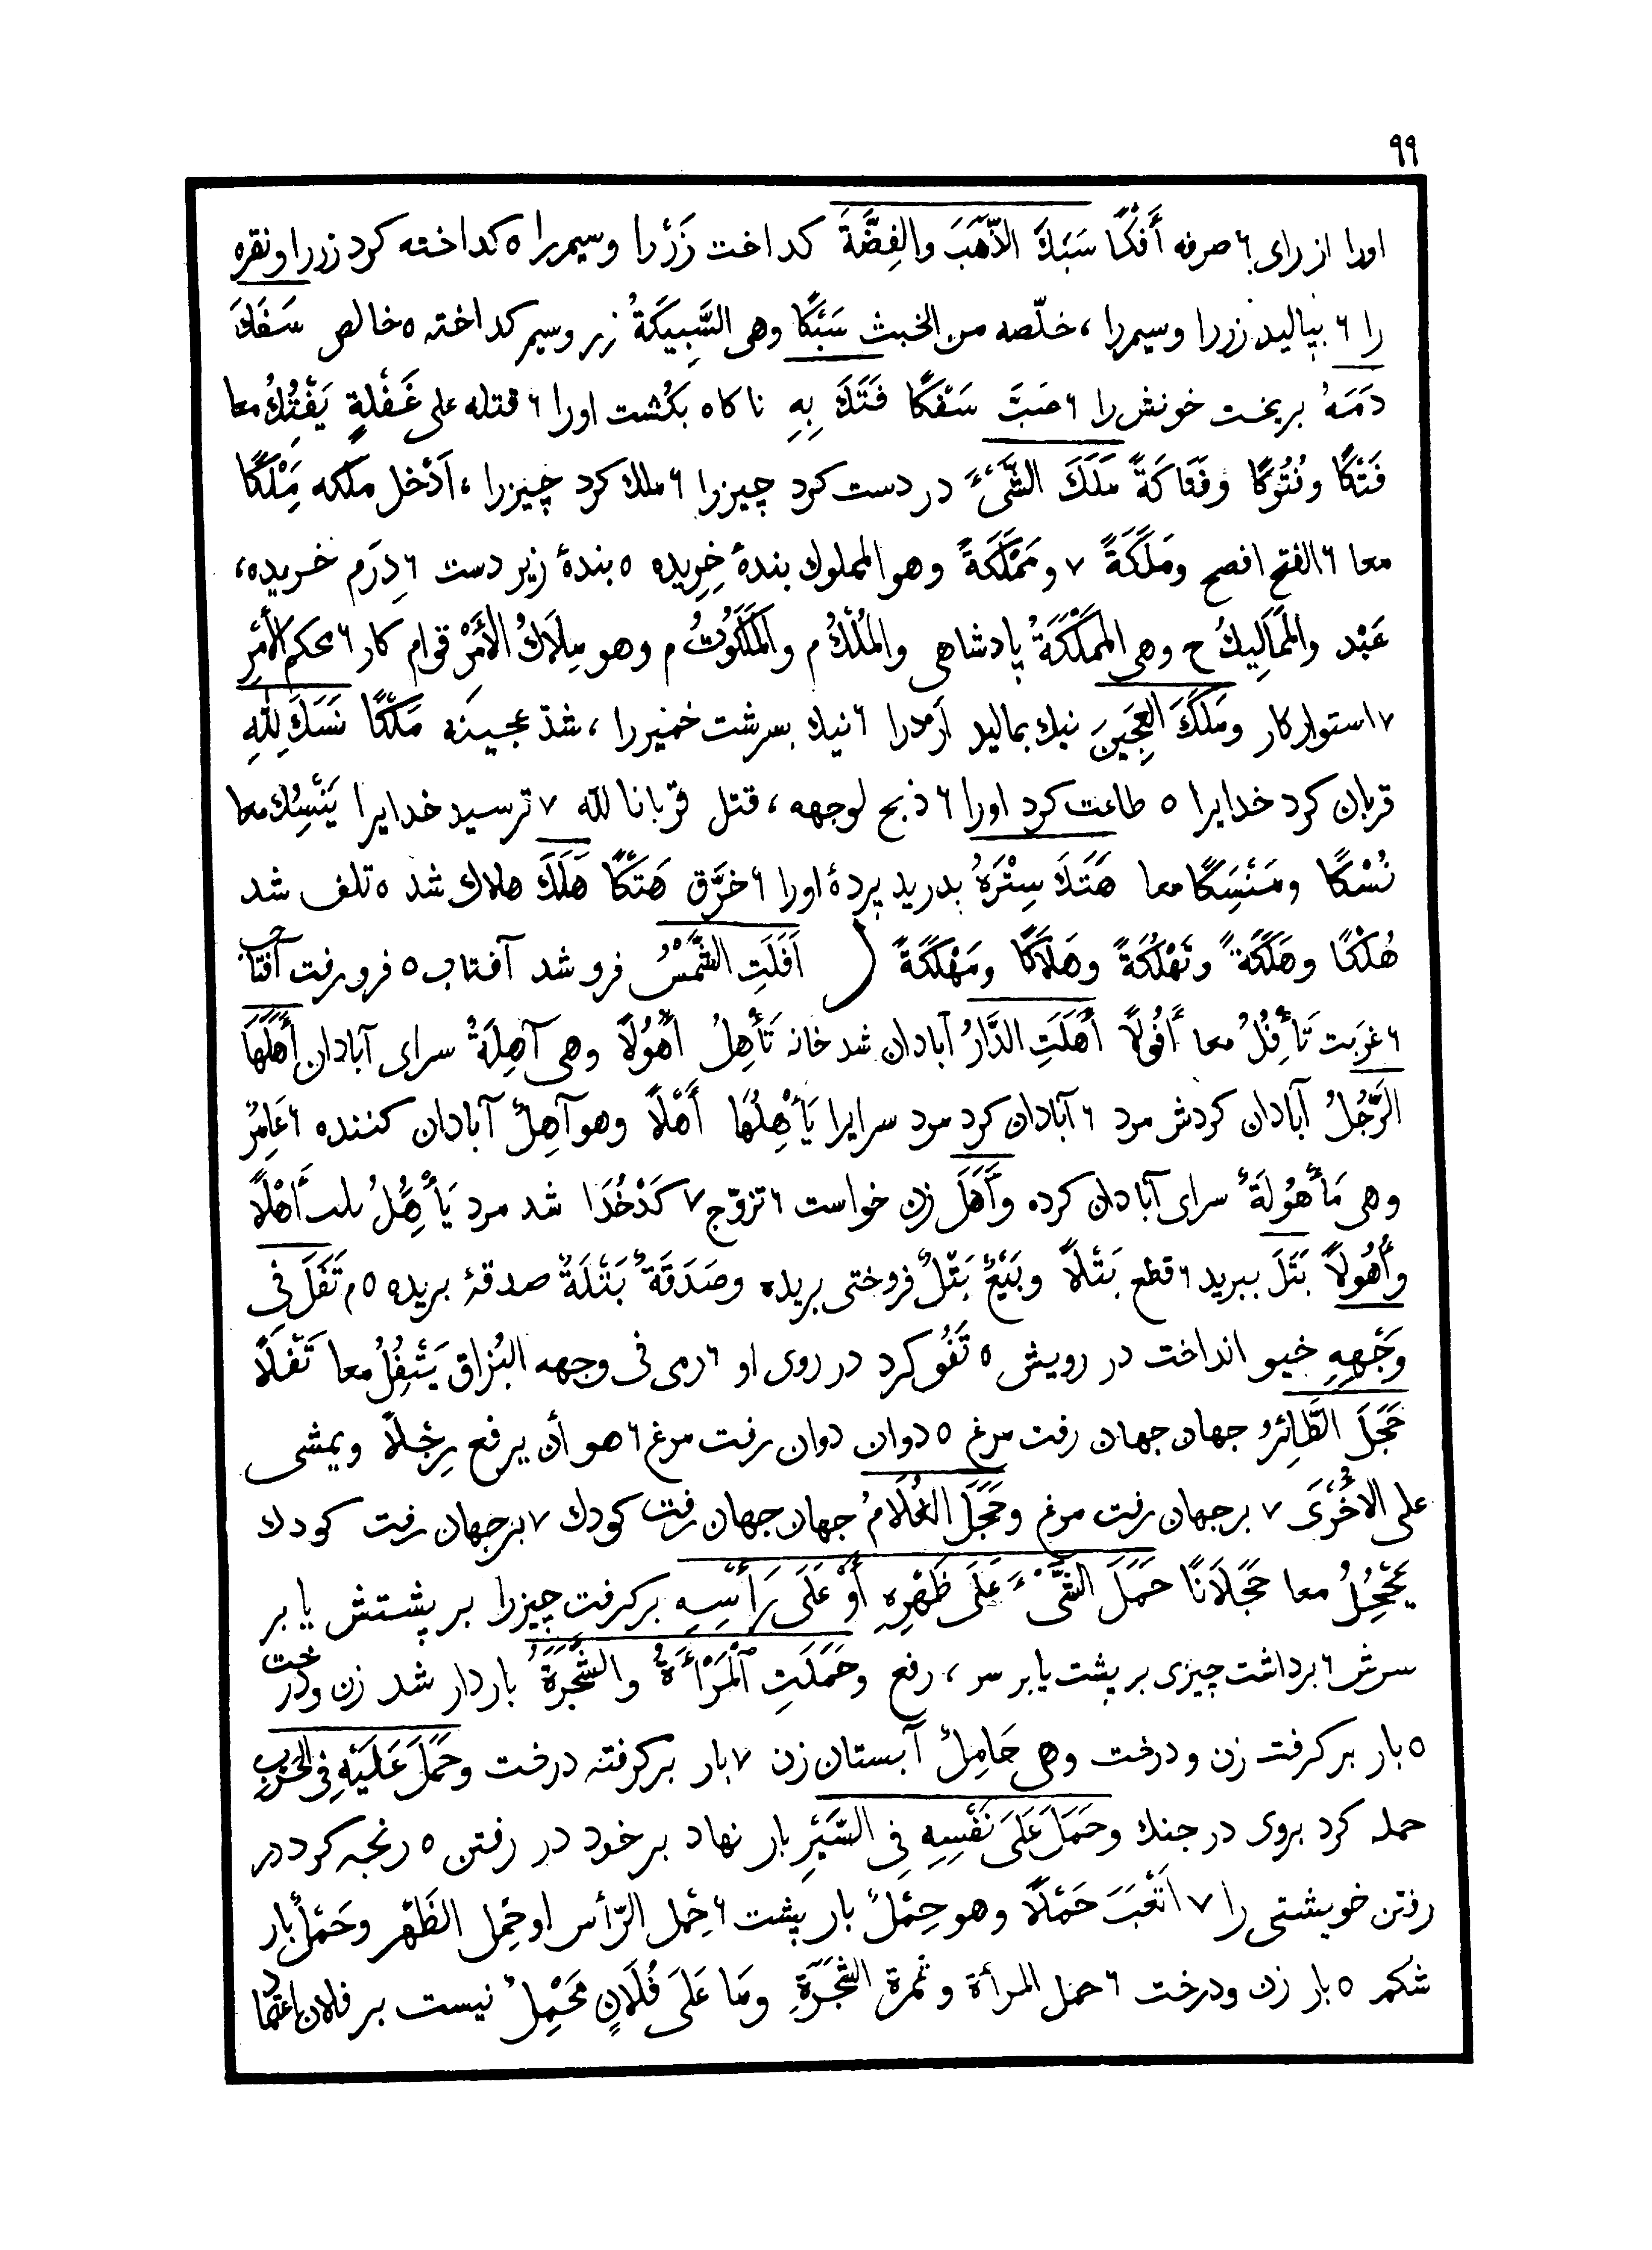 ٩٩
اورا از رای ٦ صرفه أَفْكًا سَبَكَ الذَّهَبَ والفِضَّةَ كداخت زَرْرا وسیمررا ٥ كداخته كرد زررا ونقره
را ٦ بپالید زررا وسیمررا ، خلّصه من الخبث سَبْكًا وهی السَّبِیكَةُ زر وسیم كداخته ٥ خالص سَفَكَ
دَمَهُ بریخت خونش را ٦ صَبَّ سَفْكًا فَتَكَ بِهِ ناكاه بكُشت اورا ٦ قتله علی غَفْلةٍ یَفْتُِكُ معا
فَتْكًا وفُتُوكًا وفَتَاكَةً مَلَكَ الشَّیْءَ در دست كرد چیزرا ٦ ملك كرد چیزرا ، اَدْخل ملكه مَِلْكًا
معا ٦ الفتح افصح ومَلَكَةً ٧ ومَمْلَكَةً وهو المملوك بندهٔ خِریده ٥ بندهٔ زیر دست ٦ دِرَم خریده،
عَبْد والمَمَالِیكُ ح وهی المَمْلَكَةُ پادشاهی والمُلْكُ م والمَلَكُوتُ م وهو مِلَاكُ الأَمْرِ قوام كار ٦ محكم الأَمْرِ
٧ استوار كار ومَلَكَ العَجِینَ نیك بمالید آردرا ٦ نیك بسرشت خمیررا ، شدّ عجینه مَلْكًا نَسَكَ لِلّٰهِ
قربان كرد خدایرا ٥ طاعت كرد اورا ٦ ذبح لوجهه ، قتل قربانا لله ٧ ترسید خدایرا یَنْسُِك معا
نُسْكًا ومَنْسَِكًا معا هَتَكَ سِتْرَهُ بدرید پردهٔ اورا ٦ خَرَّق هَتْكًا هَلَكَ هلاك شد ٥ تلف شد
هُلْكًا وهَلَكَةً وتَهْلُكَةً وهَلَاكًا ومَهْلَكَةً ل اَفَلَتِ الشَّمْسُ فرو شد آفتاب ٥ فرو رفت آفتاب
٦ غَرَبت تَأْفُِلُ معا أُفُولًا أَهَلَتِ الدَّارُ آبادان شد خانه تَأْهِلُ أُهُولًا وهی آهِلَةٌ سرای آبادان أَهَلَهَا
الرَّجُلُ آبادان كردش مرد ٦ آبادان كرد مرد سرایرا یَأْهِلُهَا أَهْلًا وهو آهِلٌ آبادان كننده ٦ عَامِرٌ
وهی مَأْهُولَةٌ سرای آبادان كرده وأَهَلَ زن خواست ٦ تزوّج ٧ كَدْخُدَا شد مرد یَأْهُِلُ أَهْلًا
وأُهُولًا بَتَلَ ببرید ٦ قطع بَتْلًا وبَیْعٌ بَتْلٌ فروختی بریده وصَدَقَةٌ بَتْلَةٌ صدقهٔ بریده ٥ م تَفَلَ فِی
وَجْهِهِ خیو انداخت در رویش ٥ تَفُو كرد در روی او ٦ رمی فی وجهه البُزاق یَتْفُِلُ معا تَفْلًا
حَجَلَ الطَّائِرُ جهان جهان رفت مرغ ٥ دوان دوان رفت مرغ ٦ هو أن یرفع رِجْلًا ویمشی
علی الأُخْرَی ٧ برجهان رفت مرغ وحَجَلَ الغُلَامُ جهان جهان رفت كودك ٧ برجهان رفت كودك
یَحْجُِلُ معا حَجَلَانًا حَمَلَ الشَّیْءَ عَلَی ظَهْرِهِ أَوْ عَلَی رَأْسِهِ بركرفت چیزرا بر پشتش یا بر
سرش ٦ برداشت چیزی بر پشت یا بر سر ، رفع وحَمَلَتِ المَرْأَةُ والشَّجَرَةُ باردار شد زن ودرخت
٥ بار بركرفت زن ودرخت وهی حَامِلٌ آبستان زن ٧ بار بركرفته درخت وحَمَلَ عَلَیْهِ فِی الحَرْبِ
حمله كرد بروی در جنك وحَمَلَ عَلَی نَفْسِهِ فِی السَّیْرِ بار نهاد بر خود در رفتن ٥ رنجه كرد در
رفتن خویشتی را ٧ اَتْعَبَ حَمْلًا وهو حِمْلٌ بار پشت ٦ حِمْل الرّأس او حِمْل الظَهْر وحَمْلٌ بار
شكم ٥ بار زن ودرخت ٦ حمل المرأة وثمرة الشَّجَرَةِ ومَا عَلَی فُلَانٍ مَحْمِلٌ نیست بر فلان اعتماد